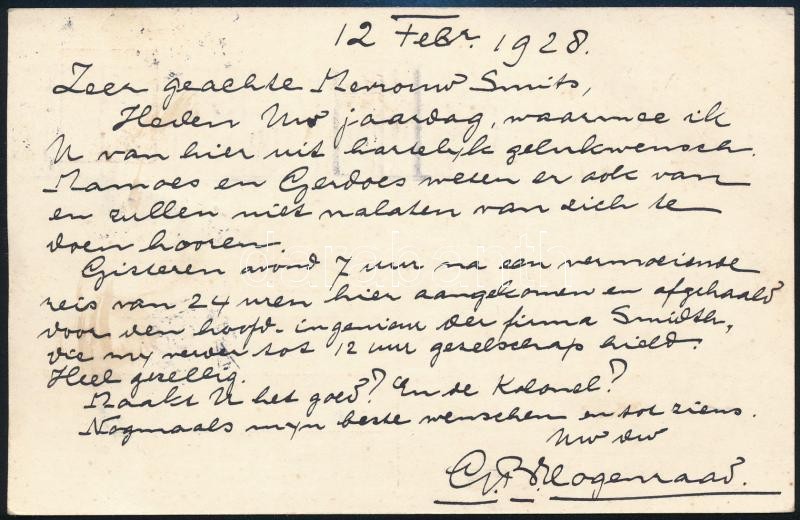 12 Febr. 1928.
Zeer geachte Mevrouw Smits,
Heden Uw jaardag, waarmee ik
U van hier uit hartelyk gelukwensch.
Mamoes en Gerdoes weten er ook van
en zullen niet nalaten van zich te
doen hooren.
Gisteren avond 7 uur na een vermoeiende
reis van 24 uren hier aangekomen en afgehaald
door den hoofd-ingenieur der firma Smidth,
die my verder tot 12 uur gezelschap hield.
Heel gezellig.
Maakt U het goed? En de Kolonel?
Nogmaals myn beste wenschen en tot ziens.
Uw dw